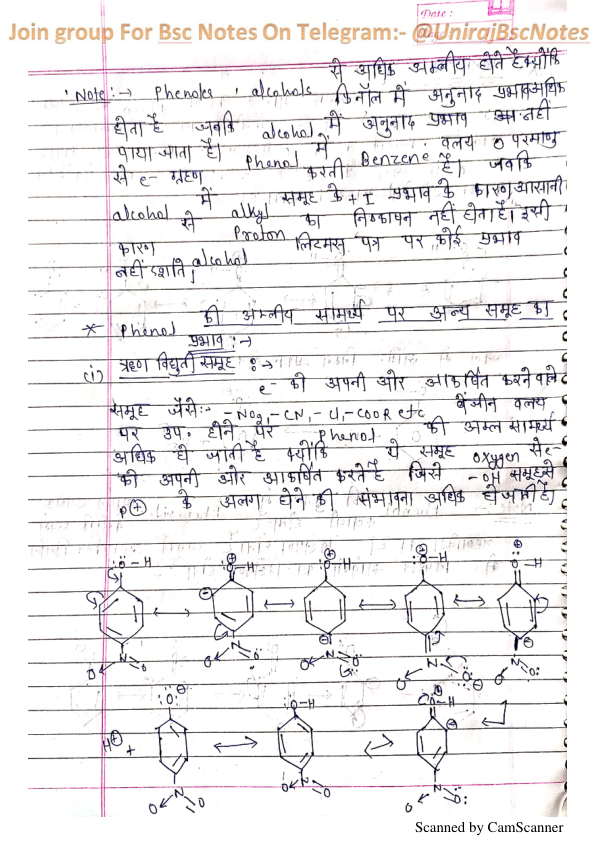 Date :
Join group For Bsc Notes On Telegram:- @UnirajBscNotes
Note:→ Phenoles, alcohols से अधिक अम्लीय होते है क्योंकि
फिनॉल में अनुनाद प्रभाव अधिक
होता है जबकि alcohol में अनुनाद प्रभाव नहीं
पाया जाता है। Phenol में Benzene वलय O परमाणु
से e- ग्रहण करती है। जबकि
alcohol में alkyl समूह के +I प्रभाव के कारण आसानी
से Proton का निष्कापन नहीं होता है। इसी
कारण alcohol लिटमस पत्र पर कोई प्रभाव
नहीं दर्शाते।
* Phenol की अम्लीय सामर्थ्य पर अन्य समूह का
प्रभाव :→
(i) ऋण विद्युती समूह :→
e- को अपनी ओर आकर्षित करने वाले
समूह जैसे:- -NO2, -CN, -Cl, -COOR etc बेंजीन वलय
पर उप. होने पर Phenol की अम्ल सामर्थ्य
अधिक हो जाती है क्योंकि ये समूह oxygen से e-
को अपनी ओर आकर्षित करते है जिसे -OH समूह से
p⊕ के अलग होने की संभावना अधिक हो जाती है।
:Ö-H ⊕ Ö-H ⊕ Ö-H ⊕ Ö-H ⊕ Ö-H
⊖ ⊖ ⊖
O N O O N O O N O O N O O N O
:Ö:⊖ O-H ⊕ O-H
H⊕ + ⊖
O N O O N O O N O
Scanned by CamScanner